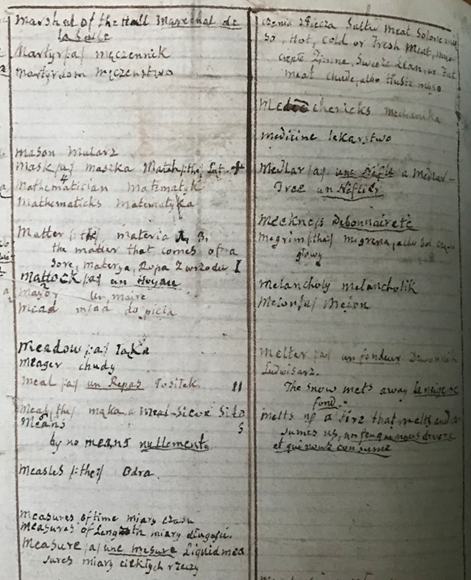 Marshal of the Hall Marechal de
la Salle
Martyr /a/ męczennik
Martyrdom męczeństwo
Mason Mularz
Mask /a/ maska
Mathematician Matematyk
Mathematicks Matematyka
Matter /the/ materia
the matter that comes of a
sore, materya, Ropa z wrzodu
Mattock /a/ un Hoyau
Mayor un maire
Mead miod do picia
Meadow /a/ Łąka
Meager chudy
Meal /a/ un Repas Posiłek
Meal /the/ mąka a Meal-Sieve Sito
Means
by no means nullement
Measles /the/ Odra
Measures of time miary czasu
Measures of Length miary długości
Measure /a/ une mesure Liquid mea
sures miary ciekłych rzeczy
Salt Meat Solone
So, Hot, Cold or Fresh Meat,
Zimne, Swieże Lean, or Fat
meat chude, albo tłuste mięso
Mechanicks Mechanika
Medicine lekarstwo
Medlar /a/ une Nèfle a Medlar-
Tree un Néflier
Meekness Debonnaireté
Megrim /the/ migrena, albo ból
głowy
Melancholy melancholik
Melon /a/ Melon
Melter /a/ un fondeur
Ludwisarz.
The Snow melts away la neige se
fond.
Melts of a fire that melts and
sumes us, un feu qui nous devore
et qui nous consume